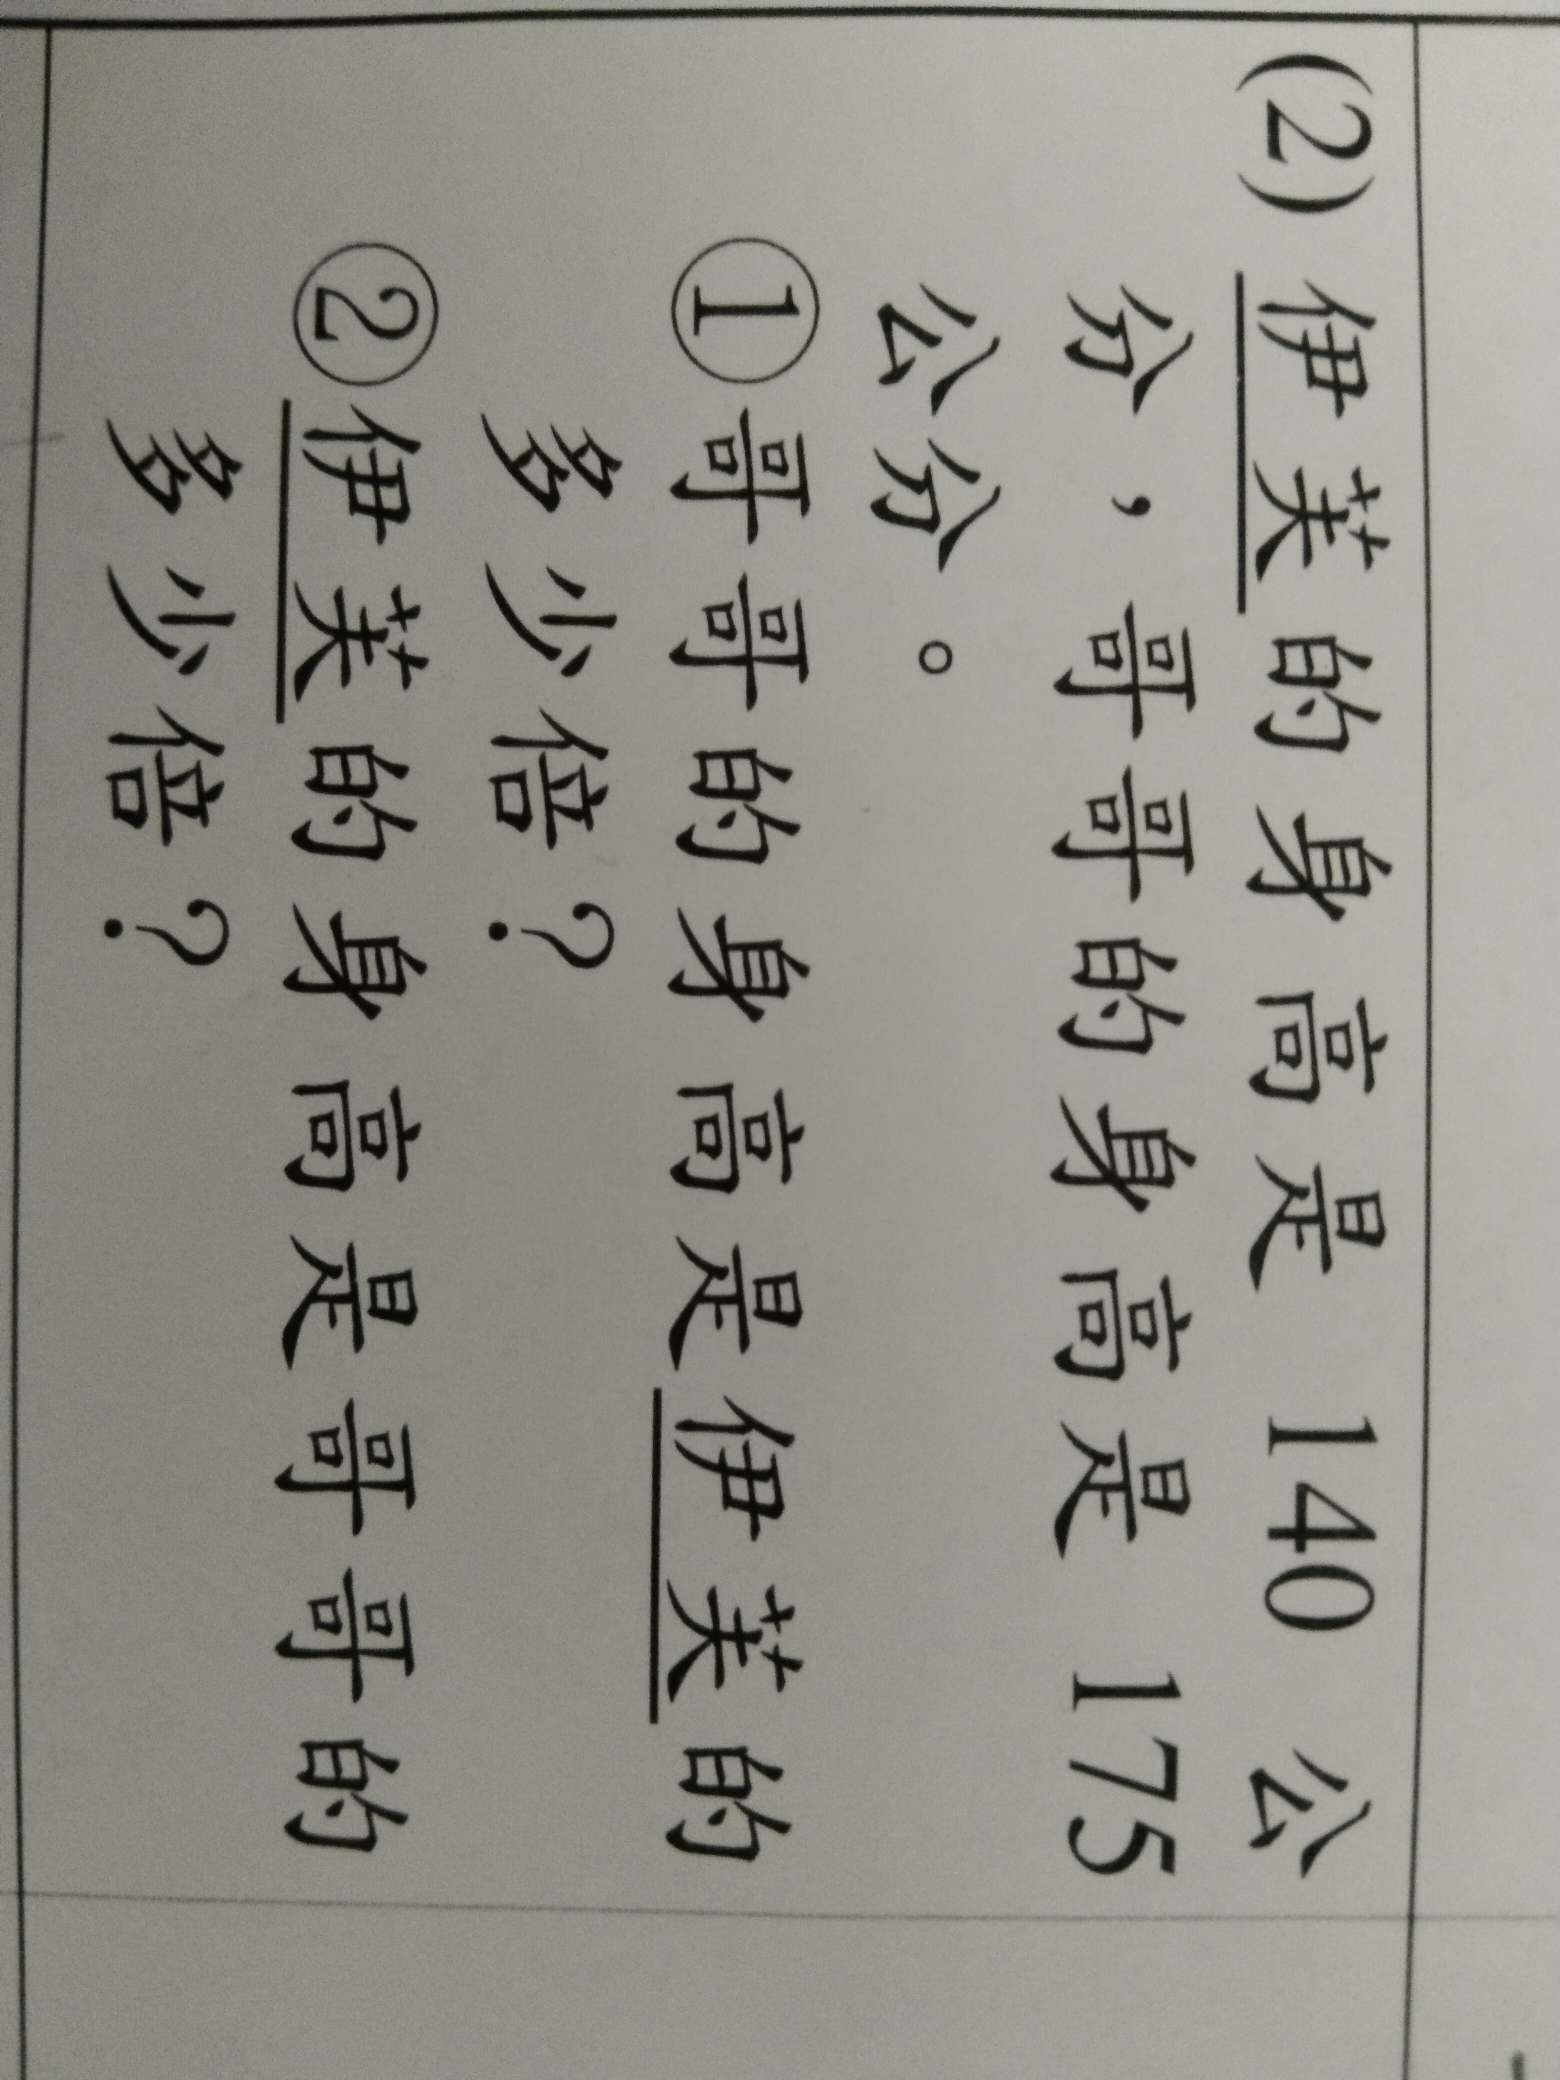 (2) 伊芙的身高是 140 公
分，哥哥的身高是 175
公分。
①哥哥的身高是伊芙的
多少倍？
②伊芙的身高是哥哥的
多少倍？